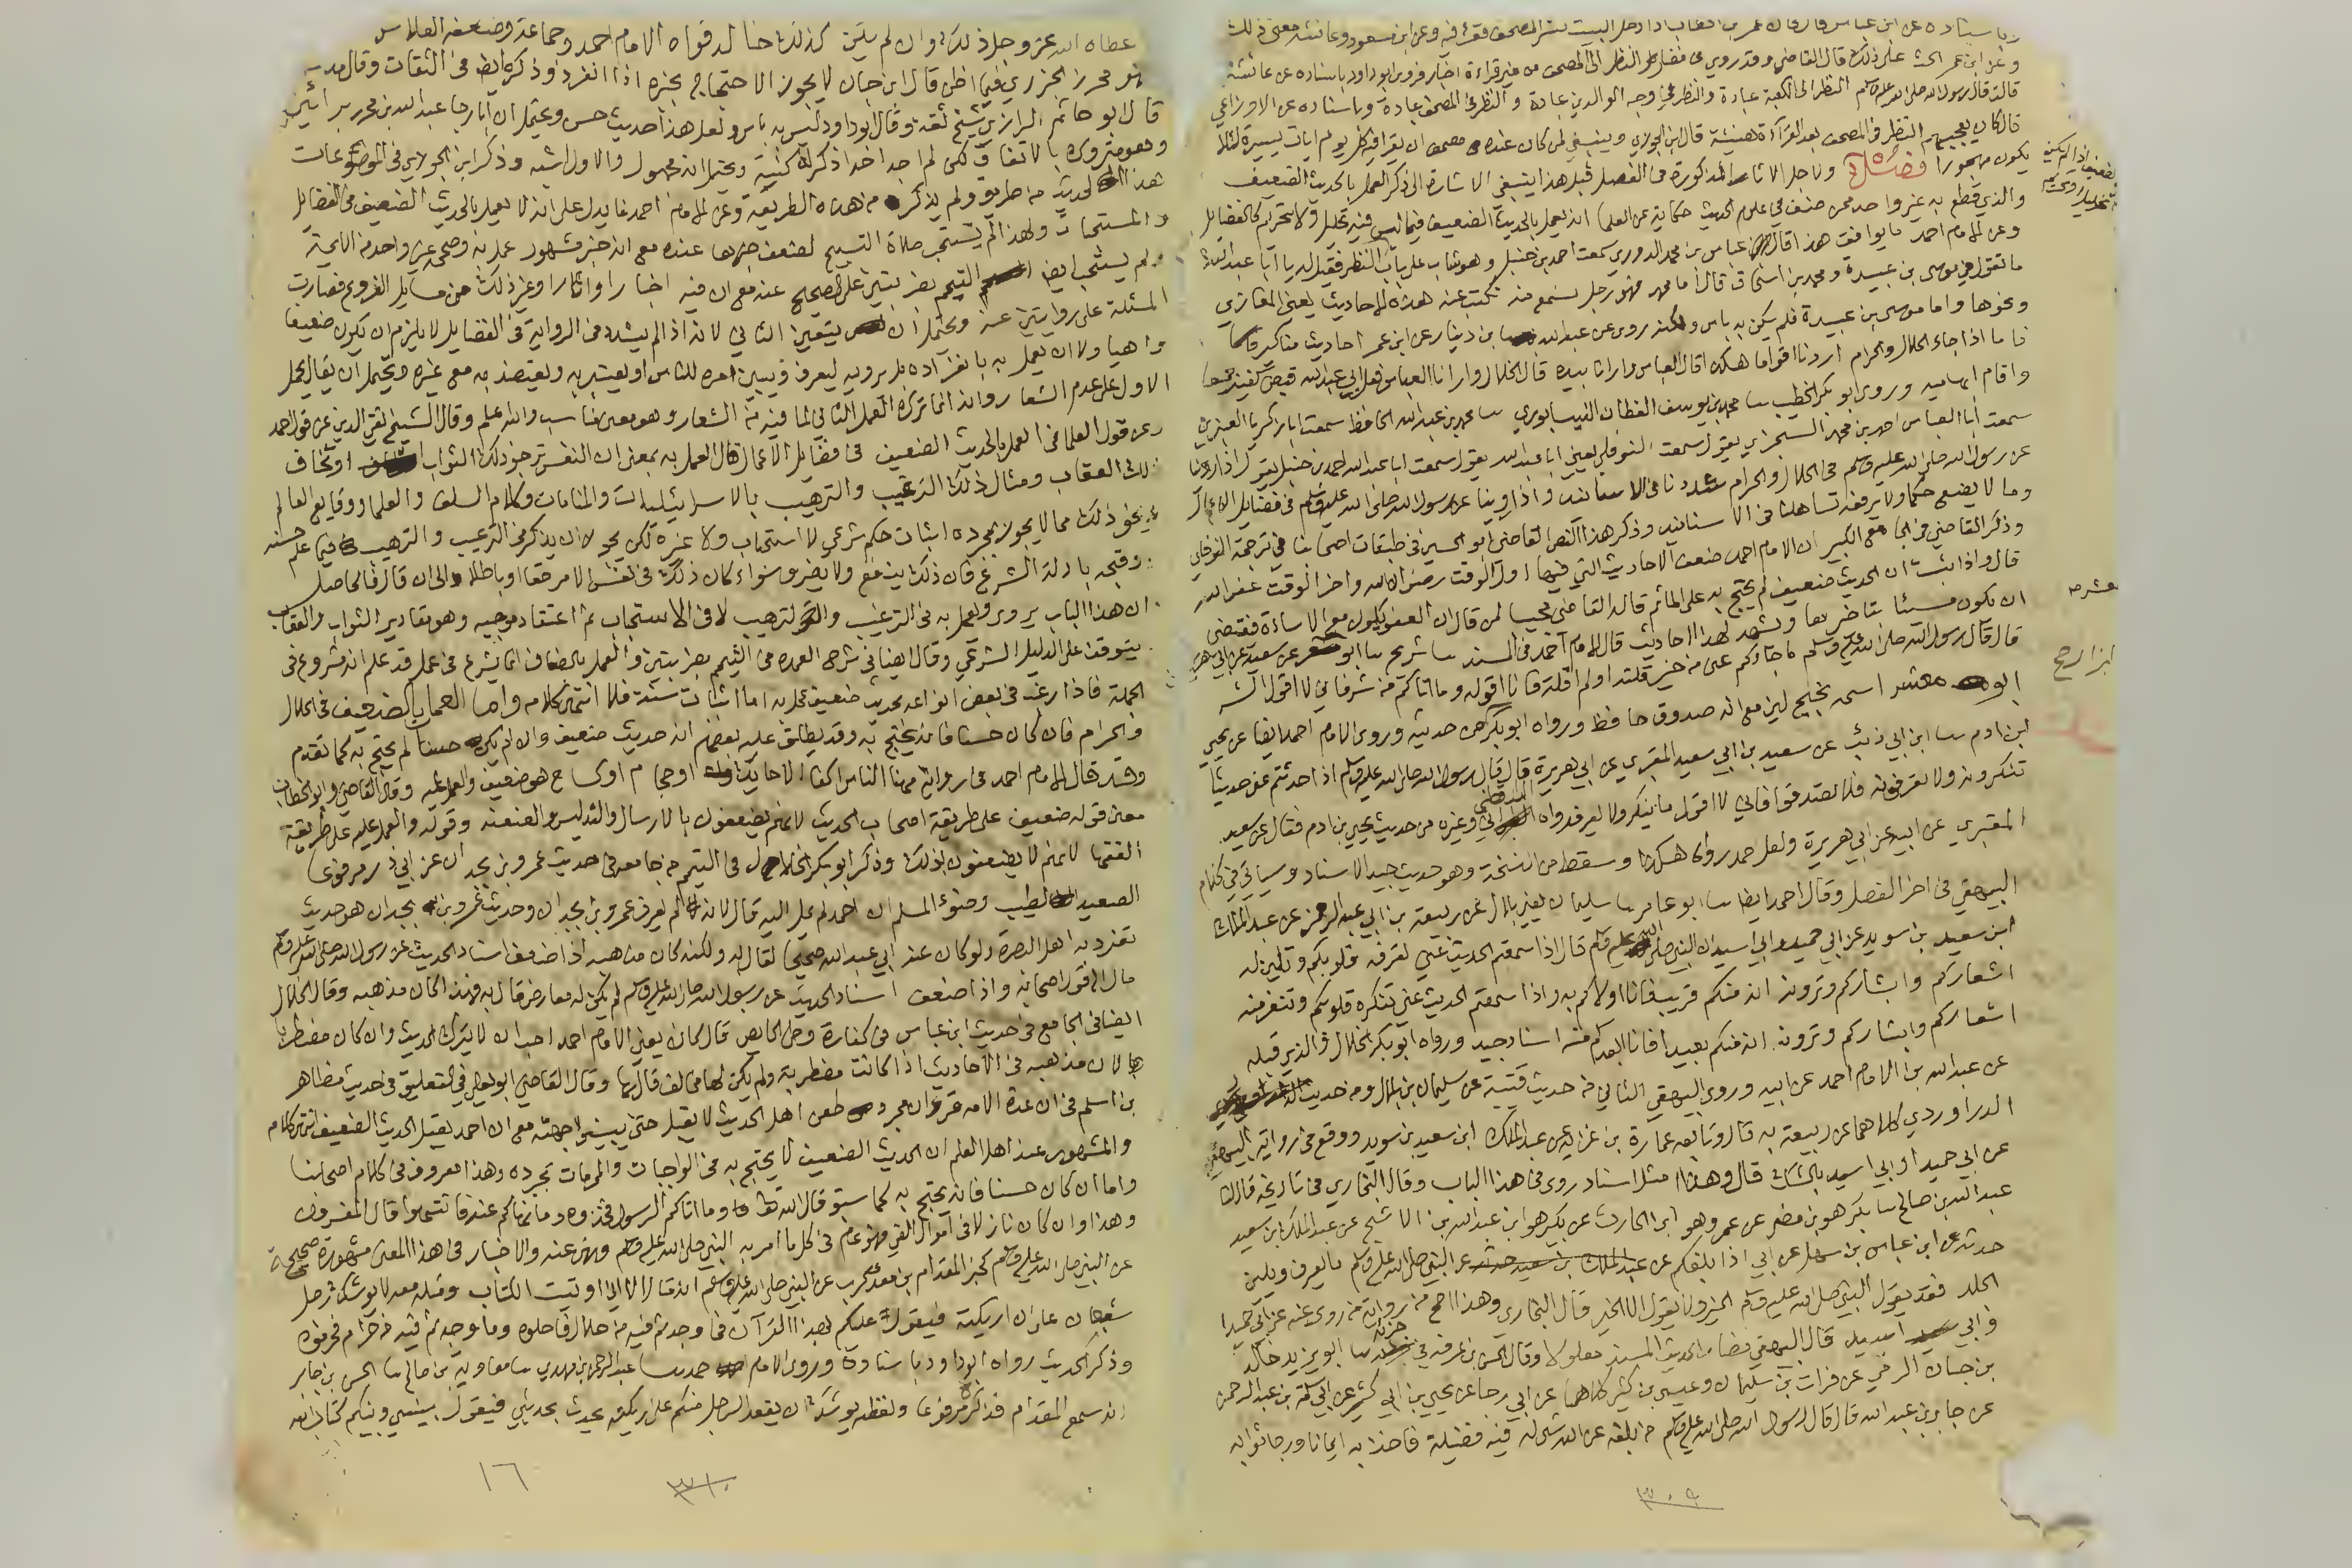 وباسناده عن ابن عباس قال كان عمر بن الخطاب اذا دخل البيت نشر المصحف فقرأ فيه وعن ابن مسعود وعائشة معنى ذلك
وعن ابن عمر الحث على ذلك قال القاضي وقد روي في فضل النظر الى المصحف من غير قراءة اخبار فروى ابو داود باسناده عن عائشة
قالت قال رسول الله صلى الله عليه وسلم النظر الى الكعبة عبادة والنظر في وجه الوالدين عبادة والنظر في المصحف عبادة وباسناده عن الاوزاعي
قال كان يعجبهم النظر في المصحف بعد القرآءة هنيئة قال ابن الجوزي وينبغي لمن كان عنده مصحف ان يقرا فيه كل يوم ايات يسيرة لئلا
يكون مهجورا فصل ولاجل الاثار المذكورة في الفصل قبل هذا ينبغي الاشارة الى ذكر العمل بالحديث الضعيف
والذي قطع به غير واحد ممن صنف في علوم الحديث حكاية عن العلما انه يعمل بالحديث الضعيف فيما ليس فيه تحليل ولا تحريم كالفضايل
وعن الامام احمد ما يوافق هذا قال عباس بن محمد الدوري سمعت احمد بن حنبل وهو شاب على باب ابي النظر فقيل له يا ابا عبد الله
ما تقول في موسى بن عبيدة ومحمد بن اسحاق قال اما محمد فهو رجل نسمع منه نكتب عنه هذه الاحاديث يعني المغازي
ونحوها واما موسى بن عبيدة فلم يكن به باس ولكنه روى عن عبد الله بن دينار عن ابن عمر احاديث مناكير
فاما اذا جاء الحلال والحرام اردنا اقواما هكذا قال العباس وارانا بيده قال الخلال وارانا العباس فعل ابي عبد الله قبض كفيه جميعا
واقام ابهاميه وروى ابو بكر الخطيب محمد بن يوسف القطان النيسابوري محمد بن عبد الله الحافظ سمعت ابا زكريا العنبري
سمعت ابا العباس احمد بن محمد السجزي يقول سمعت النوفلي يعني ابا عبد الله يقول سمعت ابا عبد الله احمد بن حنبل يقول اذا روينا
عن رسول الله صلى الله عليه وسلم في الحلال والحرام شددنا في الاسانيد واذا روينا عن رسول الله صلى الله عليه وسلم في فضايل الاعمال
وما لا يضع حكما ولا يرفعه تساهلنا في الاسانيد وذكر هذا النص القاضي ابو الحسين في طبقات اصحابنا في ترجمة النوفلي
وذكر القاضي في الجامع الكبير ان الامام احمد ضعف الاحاديث التي فيها اول الوقت رضوان الله واخر الوقت عفو الله
قال واذا ثبت ان الحديث ضعيف لم يحتج به على المأثم قال القاضي مجيبا لمن قال ان العفو يكون مع الاساءة فقتضى
ان يكون مسيئا بتاخيرها ويشهد لهذا احاديث قال الامام احمد في المسند شريح ابو معشر عن سعيد عن ابي هريرة
قال قال رسول الله صلى الله عليه وسلم ما جاءكم عني من خير قلته او لم اقله فانا اقوله وما اتاكم من شر فاني لا اقول الشر
ابو معشر اسمه نجيح لين مع انه صدوق حافظ ورواه ابو بكر من حديثه وروى الامام احمد ايضا عن يحيى
ابن ادم ابن ابي ذئب عن سعيد بن ابي سعيد المقبري عن ابي هريرة قال قال رسول الله صلى الله عليه وسلم اذا حدثتم عني حديثا
تنكرونه ولا تعرفونه فلا تصدقوا فاني لا اقول ما ينكر ولا يعرف رواه الدارقطني وغيره من حديث يحيى بن ادم فقال عن سعيد
المقبري عن ابيه عن ابي هريرة ولعل احمد رواه هكذا وسقط من النسخة وهو حديث جيد الاسناد وسياتي في كلام
البيهقي في اخر الفصل وقال احمد ايضا ابو عامر سليمان يعني بلال عن ربيعة بن ابي عبد الرحمن عن عبد الملك
ابن سعيد بن سويد عن ابي حميد وابي اسيد ان النبي صلى الله عليه وسلم قال اذا سمعتم الحديث عني تعرفه قلوبكم وتلين له
اشعاركم وابشاركم وترون انه منكم قريب فانا اولاكم به واذا سمعتم الحديث عني تنكره قلوبكم وتنفر منه
اشعاركم وابشاركم وترون انه منكم بعيد فانا ابعدكم منه اسناد جيد ورواه ابو بكر الخلال والذي قبله
عن عبد الله بن الامام احمد عن ابيه وروى البيهقي الثاني من حديث قتيبة عن سليمان بن بلال ومن حديث
الدراوردي كلاهما عن ربيعة به قال وتابعه عمارة بن غزية عن عبد الملك ابن سعيد بن سويد ووقع في رواية البيهقي
عن ابي حميد او ابي اسيد بالشك قال وهذا امثل اسناد روي في هذا الباب وقال البخاري في تاريخه قال لنا
عبد الله بن صالح بكر هو بن مضر عن عمرو هو ابن الحارث عن بكير هو ابن عبد الله بن الاشج عن عبد الملك بن سعيد
حدثه عن ابن عباس بن سهل عن ابي اذا بلغكم عن النبي صلى الله عليه وسلم ما يعرف ويلين
الجلد فقد يقول النبي صلى الله عليه وسلم الخير ولا يقول الا الخير قال البخاري وهذا اصح من رواية من روى عنه عن ابي حميد
وابي اسيد قال البيهقي فصار الحديث المسند معلولا وقال الحسن بن عرفة في جزئه ابو يزيد خالد
بن حيان الرقي عن فرات بن سليمان وعيسى بن كثير كلاهما عن ابي رجا عن يحيى بن ابي كثير عن ابي سلمة بن عبد الرحمن
عن جابر بن عبد الله قال قال رسول الله صلى الله عليه وسلم من بلغه عن الله شى له فيه فضيلة فاخذ به ايمانا ورجا ثوابه
٣٠٩
عطاه الله عز وجل ذلك وان لم يكن كذلك خالد قواه الامام احمد وجماعة وضعفه الفلاس
هو محرز الجزري فيما اظن قال ابن حبان لا يجوز الاحتجاج بخبره اذا انفرد وذكره ايضا في الثقات وقال
قال ابو حاتم الرازي شيخ ثقة وقال ابو داود ليس به باس ولعل هذا حديث حسن ويحتمل ان ابا رجا عبد الله بن محرر
وهو متروك بالاتفاق لكن لم اجد احدا ذكر له كنية ويحتمل انه مجهول والاول اشبه وذكر ابن الجوزي في الموضوعات
هذا الحديث من طريق ولم يذكر من هذه الطريقة وعن الامام احمد ما يدل على انه لا يعمل بالحديث الضعيف في الفضايل
والمستحبات ولهذا لم يستحب صلاة التسبيح لضعف خبرها عنده مع انه خبر مشهور عمل به وصححه غير واحد من الايمة
ولم يستحب ايضا التيمم بضربتين على الصحيح عنه مع ان فيه اخبارا واثارا وغير ذلك من مسايل الفروع فصارت
المسئلة على روايتين عنه ويحتمل ان يتعين الثاني لانه اذا لم يشدد في الرواية في الفضايل لا يلزم ان يكون ضعيفا
واهيا ولا ان يعمل به بانفراده بل يرويه ليعرف ويبين امره للناس او يعتبر به ويعتضد به مع غيره ويحتمل ان يقال يحمل
الاول على عدم الشعار وانه انما ترك العمل الثاني لما فيه من الشعار وهو معنى مناسب والله اعلم وقال الشيخ تقي الدين عن قول احمد
وعن قول العلما في العمل بالحديث الضعيف في فضايل الاعمال قال العمل به بمعنى ان النفس ترجو ذلك الثواب او تخاف
ذلك العقاب ومثال ذلك الترغيب والترهيب بالاسرائيليات والمنامات وكلام السلف والعلما ووقايع العالم
ونحو ذلك مما لا يجوز بمجرده اثبات حكم شرعي لا استحباب ولا غيره لكن يجوز ان يذكر في الترغيب والترهيب فيما علم حسنه
وقبحه بادلة الشرع فان ذلك ينفع ولا يضر وسواء كان ذلك في نفس الامر حقا او باطلا الى ان قال فالحاصل
ان هذا الباب يروى ويعمل به في الترغيب والترهيب لا في الاستحباب ثم اعتقاد موجبه وهو مقادير الثواب والعقاب
يتوقف على الدليل الشرعي وقال ايضا في شرح العمدة في التيمم بضربتين والعمل بالضعاف انما يشرع في عمل قد علم انه مشروع في
الجملة فاذا رغب في بعض انواعه بحديث ضعيف عمل به اما اثبات سنة فلا انتهى كلامه واما العمل بالضعيف في الحلال
والحرام فان كان حسنا فانه يحتج به وقد يطلق عليه بعضهم انه حديث ضعيف وان لم يكن حسنا لم يحتج به كما تقدم
وقد قال الامام احمد في رواية مهنا الناس اكفاء الا حايك او حجام او كساح هو ضعيف والعمل عليه وقال القاضي وابو الخطاب
معنى قوله ضعيف على طريقة اصحاب الحديث لانهم يضعفون بالارسال والتدليس والعنعنة وقوله والعمل عليه على طريقة
الفقها لانهم لا يضعفون بذلك وذكر ابو بكر الخلال في التيمم من جامعه في حديث عمرو بن بجدان عن ابي ذر مرفوعا
الصعيد الطيب وضوء المسلم ان احمد لم يمل اليه قال لانه لم يعرف عمرو بن بجدان وحديث عمرو بن بجدان هو حديث
تفرد به اهل البصرة ولو كان عند ابي عبد الله صحيحا لقال به ولكنه كان مذهبه اذا ضعف اسناد الحديث عن رسول الله صلى الله عليه وسلم
مال الى قول اصحابه واذا ضعف اسناد الحديث عن رسول الله صلى الله عليه وسلم لم يكن له معارض قال به فهذا كان مذهبه وقال الخلال
ايضا في الجامع في حديث ابن عباس في كفارة وطئ الحايض قال كان يعني الامام احمد احب ان لا يترك الحديث وان كان مضطربا
لان مذهبه في الاحاديث اذا كانت مضطربة ولم يكن لها مخالف قال بها وقال القاضي ابو يعلى في التعليق في حديث مظاهر
بن اسلم في ان عدة الامه قرءان مجرد طعن اهل الحديث لا يقبل حتى يبينوا جهته مع ان احمد يقبل الحديث الضعيف انتهى كلام
والمشهور عند اهل العلم ان الحديث الضعيف لا يحتج به في الواجبات والمحرمات بمجرده وهذا معروف في كلام اصحابنا
واما ان كان حسنا فانه يحتج به كما سبق قال الله تعالى وما اتاكم الرسول فخذوه وما نهاكم عنه فانتهوا قال المفسرون
وهذا وان كان نازلا في اموال الفئ فهو عام في كل ما امر به النبي صلى الله عليه وسلم ونهى عنه والاخبار في هذا المعنى مشهورة صحيحة
عن النبي صلى الله عليه وسلم كخبر المقدام بن معدي كرب عن النبي صلى الله عليه وسلم انه قال الا اني اوتيت الكتاب ومثله معه لا يوشك رجل
شبعان على اريكته فيقول عليكم بهذا القرآن فما وجدتم فيه من حلال فاحلوه وما وجدتم فيه من حرام فحرموه
وذكر الحديث رواه ابو داود باسناده وروى الامام احمد عبد الرحمن بن مهدي معاوية بن صالح الحسن بن جابر
انه سمع المقدام فذكره مرفوعا ولفظه يوشك ان يقعد الرجل منكم على اريكته يحدث بحديثي فيقول بيني وبينكم كتاب الله
٣١٠
١٦